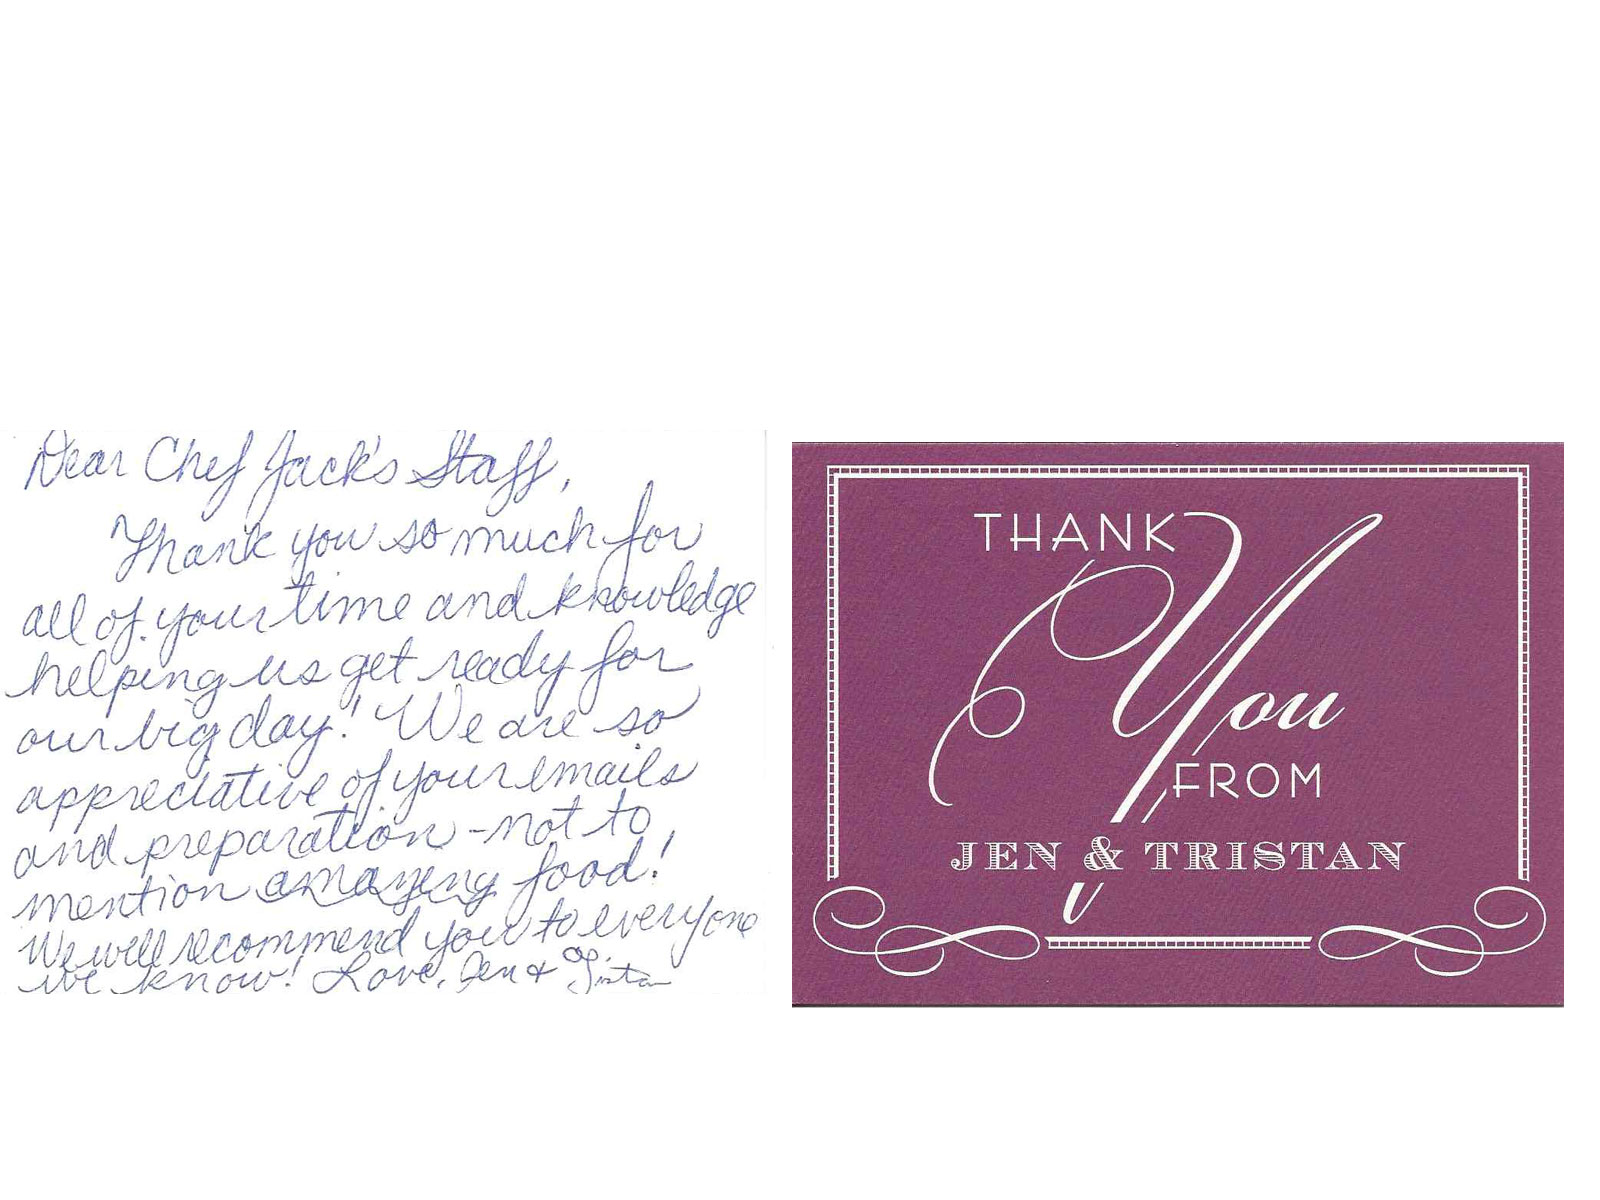 Dear Chef Jack's Staff,
Thank you so much for
all of your time and knowledge
helping us get ready for
our big day! We are so
appreciative of your emails
and preparation - not to
mention amazing food!
We will recommend you to everyone
we know! Love, Jen & Tristan
THANK
You
FROM
JEN & TRISTAN